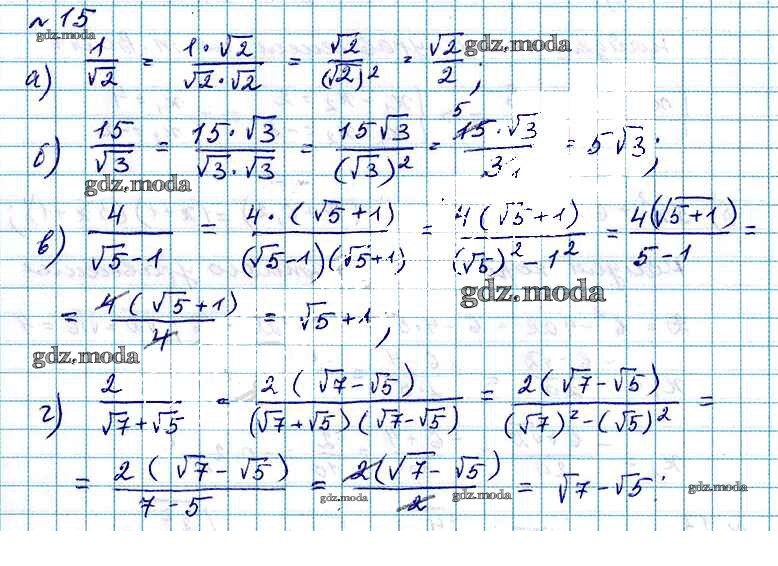 №15
gdz.moda
gdz.moda
а) 1/√2 = 1·√2/√2·√2 = √2/(√2)² = √2/2;
б) 15/√3 = 15·√3/√3·√3 = 15√3/(√3)² = 15·√3/3 = 5√3;
5
1
gdz.moda
в) 4/√5-1 = 4·(√5+1)/(√5-1)(√5+1) = 4(√5+1)/(√5)²-1² = 4(√5+1)/5-1 =
gdz.moda
= 4(√5+1)/4 = √5+1;
gdz.moda
г) 2/√7+√5 = 2(√7-√5)/(√7+√5)(√7-√5) = 2(√7-√5)/(√7)²-(√5)² =
= 2(√7-√5)/7-5 = 2(√7-√5)/2 = √7-√5.
gdz.moda
gdz.moda
gdz.moda